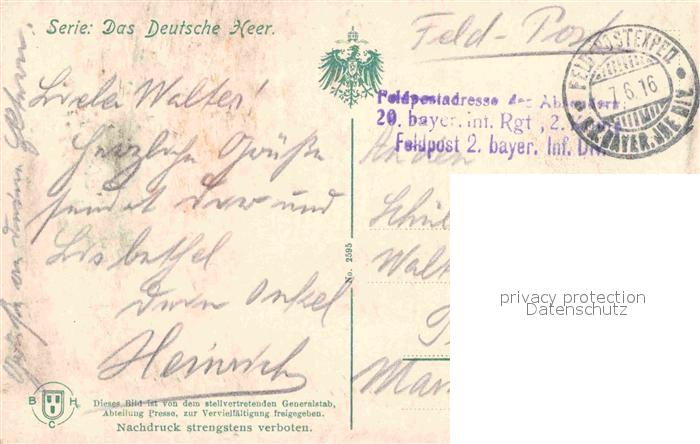 Serie: Das Deutsche Heer.
Feld-Post
FELDPOSTEXPED.
7.6.16
BAYER. INF. DIV.
Feldpostadresse des Absenders:
20. bayer. Inf. Rgt., 2.
Feldpost 2. bayer. Inf. Div.
Lieber Walter!
Herzliche Grüße
sendet Dir und
Lisbethel
Dein Onkel
Heinrich
Grüße an deine Eltern
An den
Schül
Walt
No. 2595
privacy protection
Datenschutz
B H C
Dieses Bild ist von dem stellvertretenden Generalstab,
Abteilung Presse, zur Vervielfältigung freigegeben.
Nachdruck strengstens verboten.